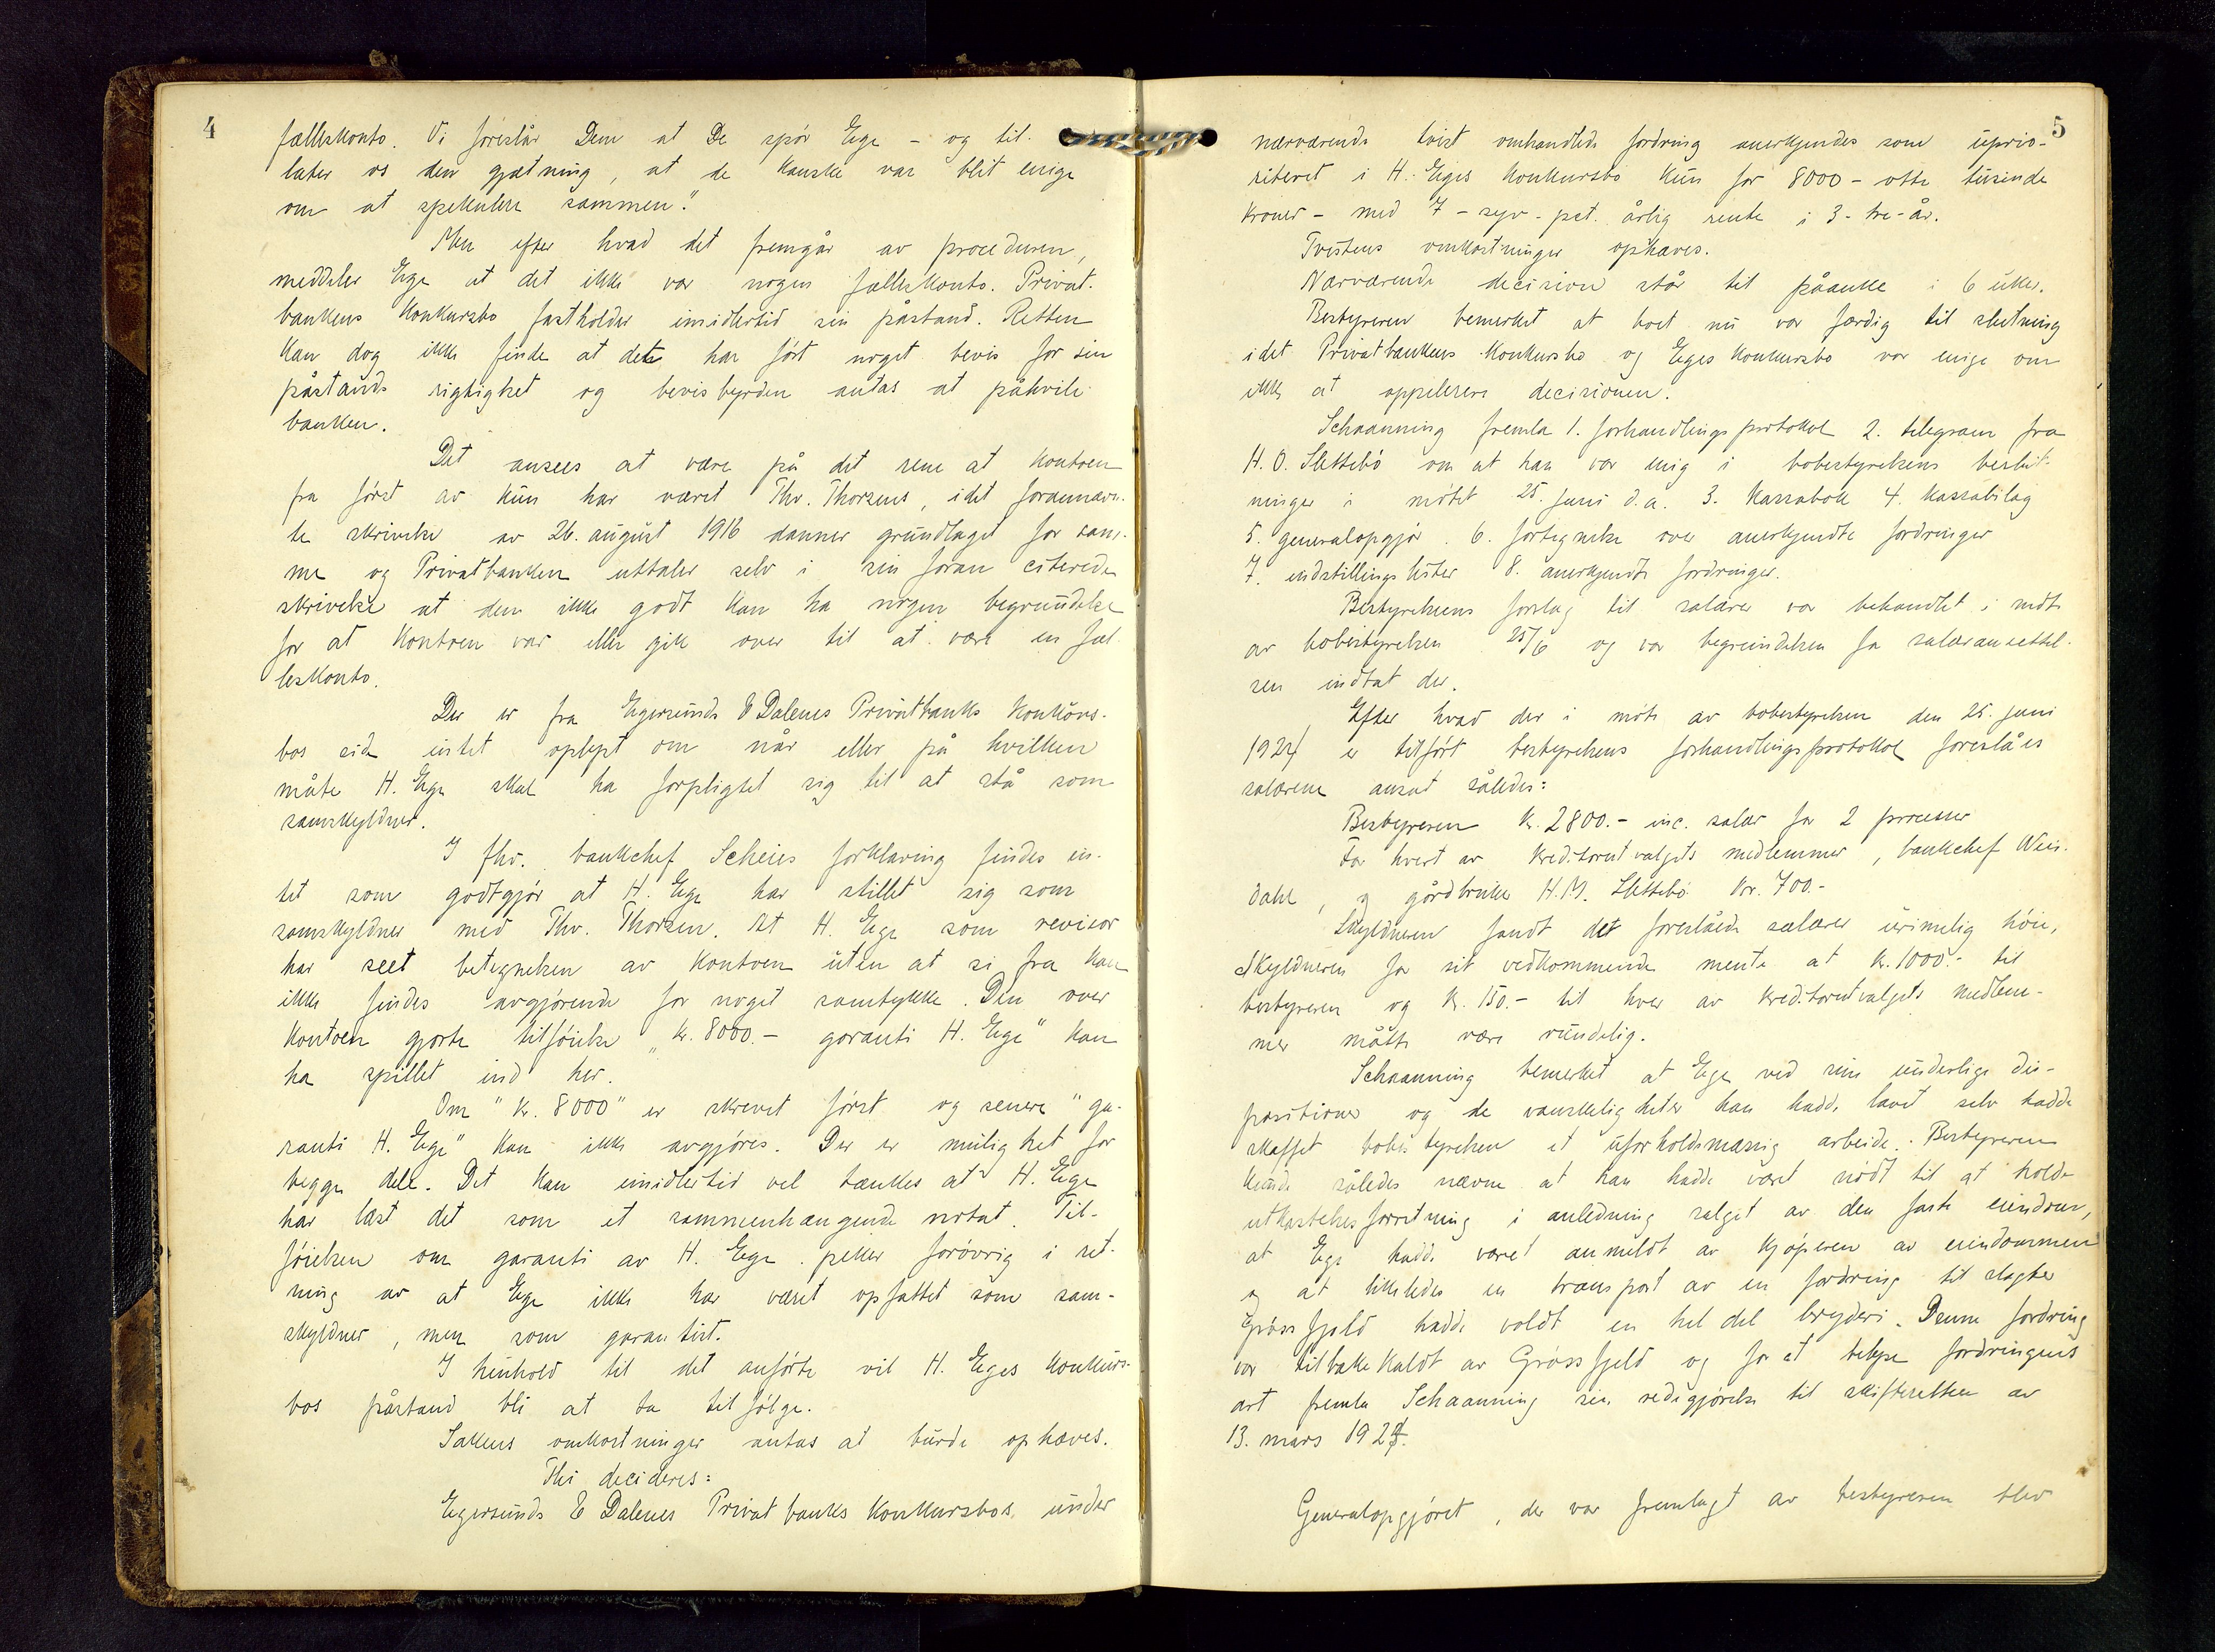 4
fælleskonto. Vi foreslår Dem at De spør Ege – og til-
later os den gjætning, at de kanske var blit enige
om at spekulere sammen."
Men efter hvad det fremgår av proceduren,
meddeler Ege at det ikke var nogen fælleskonto. Privat-
bankens konkursbo fastholder imidlertid sin påstand. Retten
kan dog ikke finde at dette har ført noget bevis for sin
påstands rigtighet og bevisbyrden antas at påhvile
banken.
Det ansees at være på det rene at kontoen
fra først av kun har været Thv. Thorsens, idet forannævn-
te skrivelse av 26. august 1916 danner grundlaget for sam-
me og Privatbanken uttaler selv i sin foran citerede
skrivelse at den ikke godt kan ha nogen begrundelse
for at kontoen var eller gik over til at være en fæl-
leskonto.
Der er fra Egersunds & Dalenes Privatbanks konkurs-
bos side intet oplyst om når eller på hvilken
måte H. Ege skal ha forpligtet sig til at stå som
samskyldner.
I fhv. bankchef Scheies forklaring findes in-
tet som godtgjør at H. Ege har stillet sig som
samskyldner med Thv. Thorsen. At H. Ege som revisor
har seet betegnelsen av kontoen uten at si fra kan
ikke findes avgjørende for noget samtykke. Den over
kontoen gjorte tilføielse "kr. 8000.- garanti H. Ege" kan
ha spillet ind her.
Om "kr. 8000" er skrevet først og senere "ga-
ranti H. Ege" kan ikke avgjøres. Der er mulighet for
begge dele. Det kan imidlertid vel tænkes at H. Ege
har læst det som et sammenhængende notat. Til-
føielsen om garanti av H. Ege peker forøvrig i ret-
ning av at Ege ikke har været opfattet som sam-
skyldner, men som garantist.
I henhold til det anførte vil H. Eges konkurs-
bos påstand bli at ta tilfølge.
Sakens omkostninger antas at burde ophæves.
Thi decideres:
Egersunds & Dalenes Privatbanks konkursbos, under
5
nærværende tvist omhandlede fordring anerkjendes som uprio-
riteret i H. Eges konkursbo kun for 8000 – otte tusinde
kroner – med 7 – syv – pct. årlig rente i 3 – tre – år.
Tvistens omkostninger ophæves.
Nærværende decision står til påanke i 6 uker.
Bestyreren bemerket at boet nu var færdig til slutning
idet Privatbankens konkursbo og Eges konkursbo var enige om
ikke at appellere decisionen.
Schaanning fremla 1. forhandlingsprotokol 2. telegram fra
H. O. Slettebø om at han var enig i bobestyrelsens beslut-
ninger i møtet 25. juni d.a. 3. Kassabok 4. kassabilag
5. generalopgjør. 6. fortegnelse over anerkjendte fordringer
7. indstillingslister 8. anerkjendte fordringer.
Bestyrelsens forslag til salærer var behandlet i møte
av bobestyrelsen 25/6 og var begrundelsen for salæransettel-
sen indtat der.
Efter hvad der i møte av bobestyrelsen den 25. juni
1924 er tilført bestyrelsens forhandlingsprotokol foreslåes
salærene ansat således:
Bestyreren kr. 2800.- inc. salær for 2 processer
For hvert av kreditorutvalgets medlemmer, bankchef
dahl, og gårdbruker H. M. Slettebø kr. 700.-
Skyldneren fandt det foreslåede salærer urimelig høie,
Skyldneren for sit vedkommende mente at kr. 1000.- til
bestyreren og kr. 150.- til hver av kreditorutvalgets medlem-
mer måtte være rundelig.
Schaanning bemerket at Ege ved sine underlige dis-
positioner og de vanskeligheter han hadde lavet selv hadde
skaffet bobestyrelsen et uforholdsmæssig arbeide. Bestyreren
kunde således nævne at han hadde været nødt til at holde
utkastelsesforretning i anledning salget av den faste eiendom,
at Ege hadde været anmeldt av kjøperen av eiendommen
og at likeledes en transport av en fordring til slagter
Grøssfjeld hadde voldt en hel del bryderi. Denne fordring
var tilbakekaldt av Grøssfjeld og for at belyse fordringens
art fremla Schaanning sin redegjørelse til skifteretten av
13. mars 1924.
Generalopgjøret, der var fremlagt av bestyreren blev